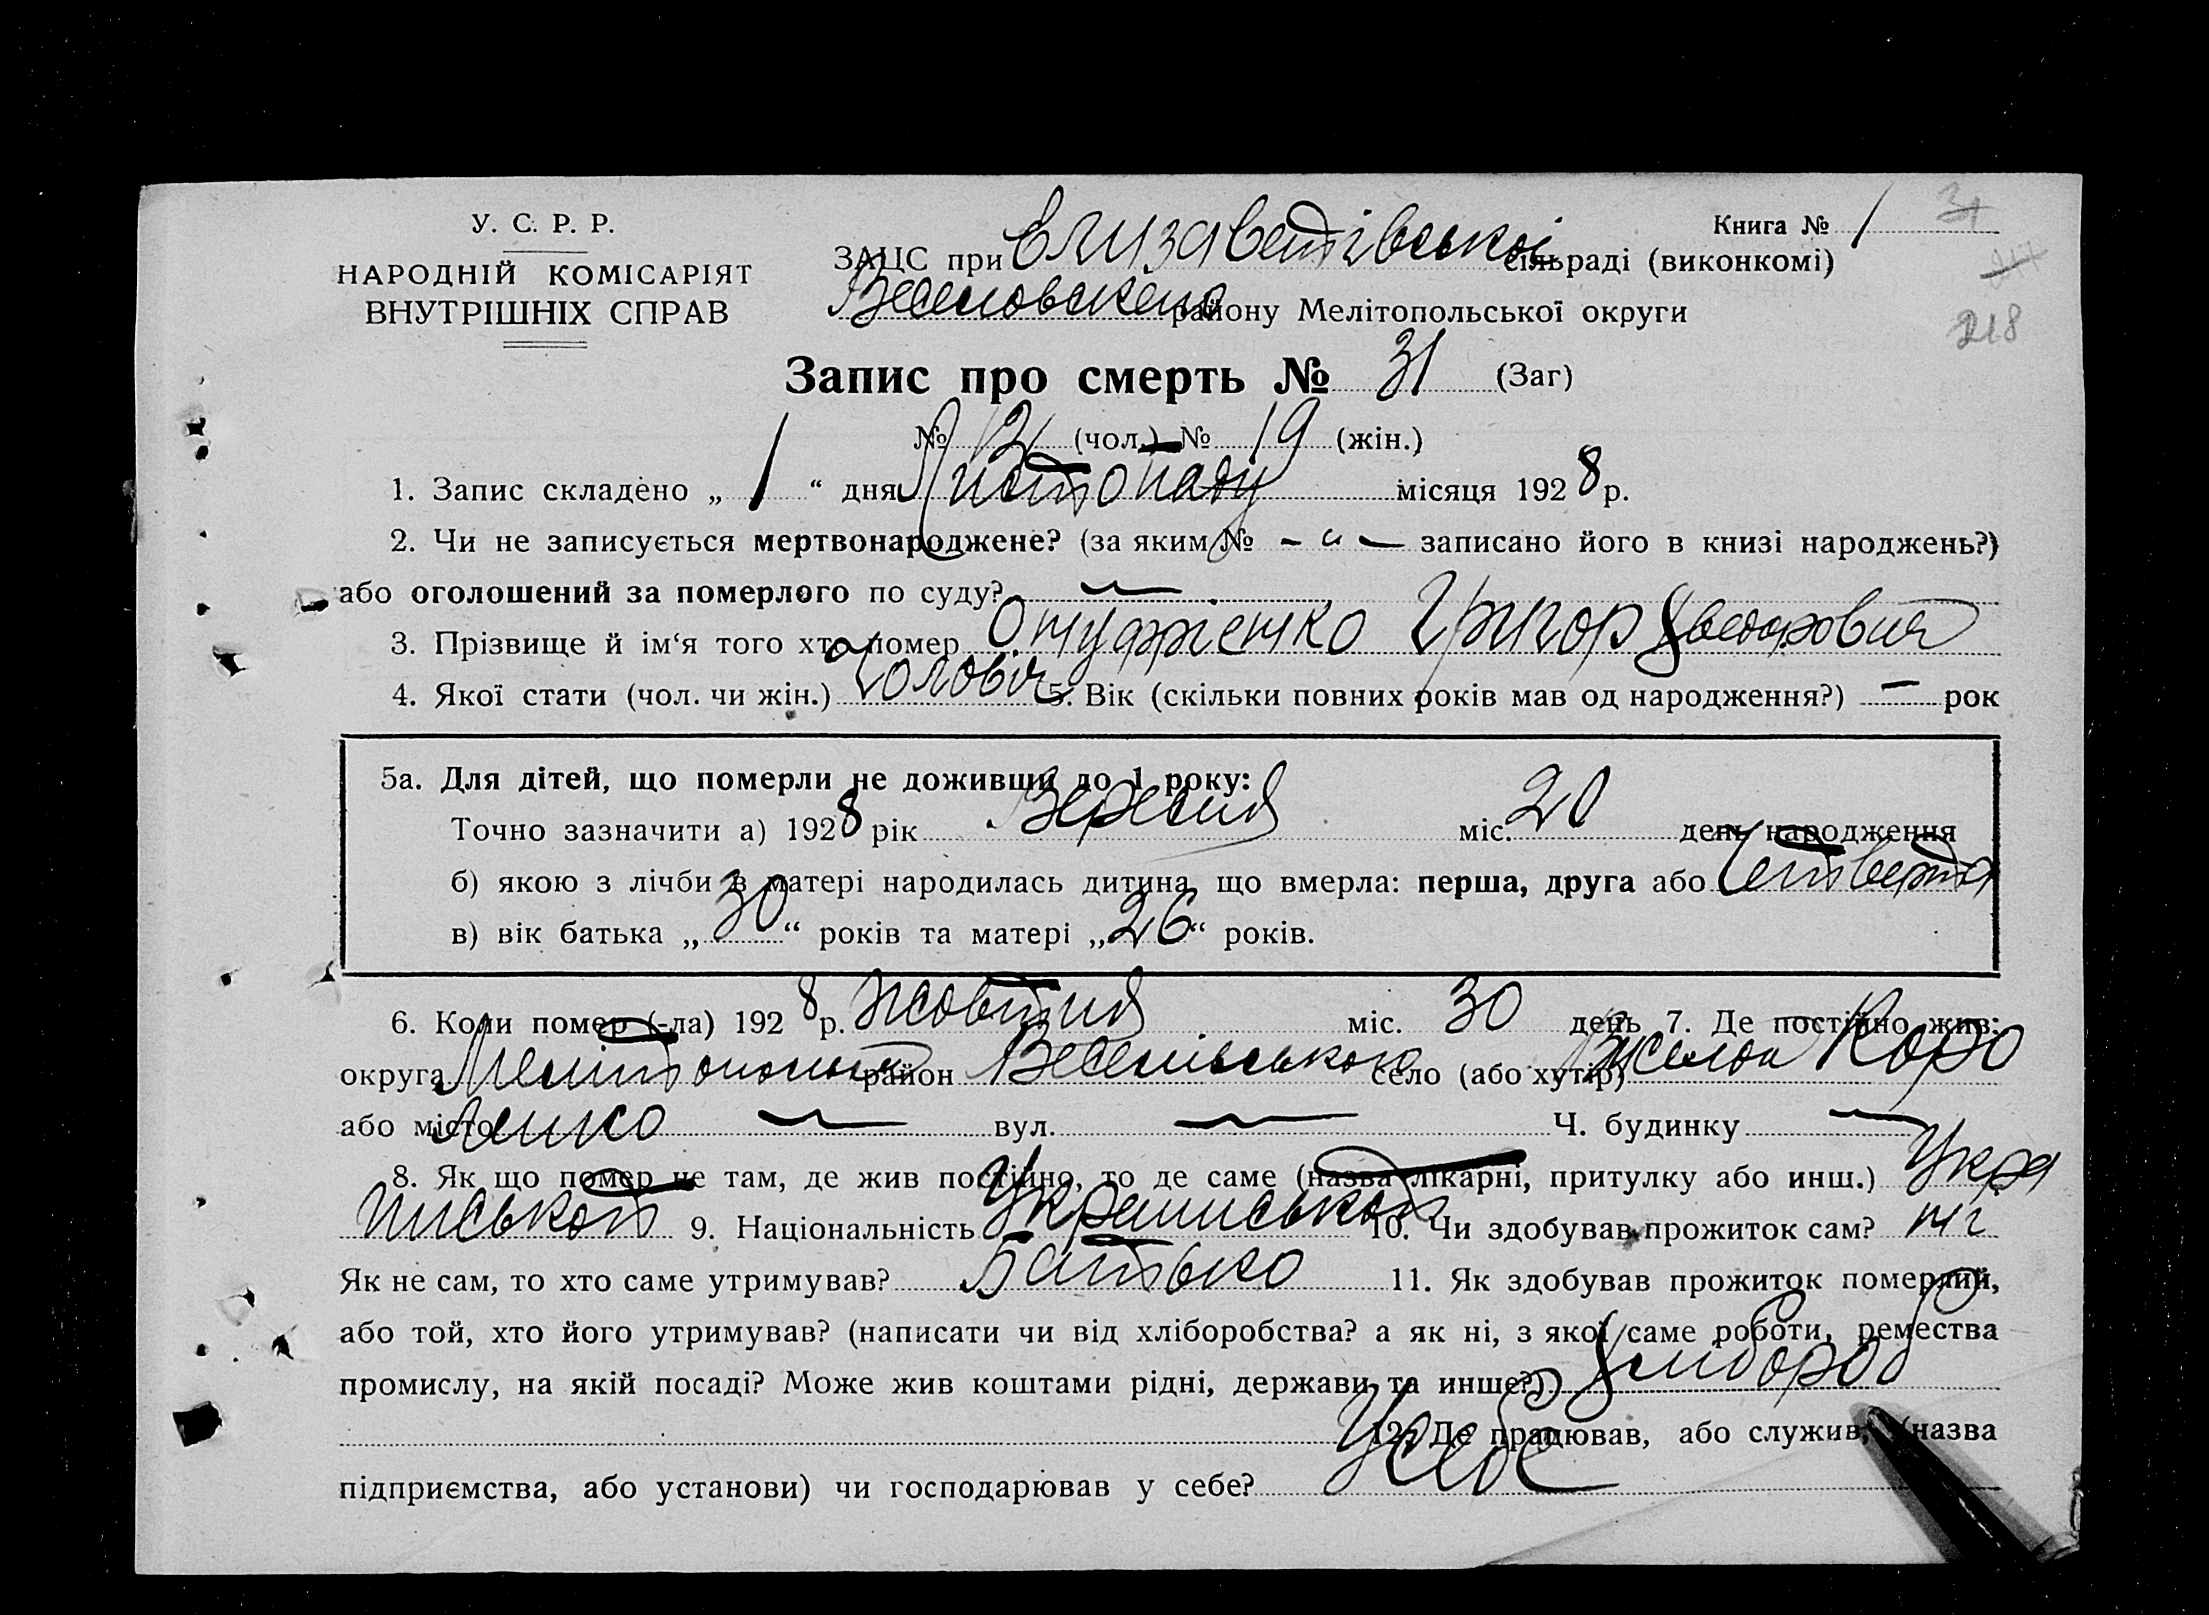 У. С. Р. Р.
НАРОДНІЙ КОМІСАРІЯТ
ВНУТРІШНІХ СПРАВ
Книга № 1 31
218
ЗАЦС при Єлизаветівській сільраді (виконкомі)
Веселовского району Мелітопольської округи
Запис про смерть № 31 (Заг)
№ 12 (чол.) № 19 (жін.)
1. Запис складено „ 1 “ дня Листопаду місяця 1928 р.
2. Чи не записується мертвонароджене? (за яким № – „ – записано його в книзі народжень?)
або оголошений за померлого по суду? —
3. Прізвище й ім‘я того хто помер Онуфрієнко Григор
4. Якої стати (чол. чи жін.) Чоловіч 5. Вік (скільки повних років мав од народження?) — рок
5а. Для дітей, що померли не доживши до 1 року:
Точно зазначити а) 1928 рік Вересня міс. 20 день народження
б) якою з лічби в матері народилась дитина, що вмерла: перша, друга або Четверта
в) вік батька „ 30 “ років та матері „ 26 “ років.
6. Коли помер (-ла) 1928 р. Жовтня міс. 30 день 7. Де постійно жив:
округа район Веселівського село (або хутір) Виселок
або місто — вул. — Ч. будинку —
8. Як що помер не там, де жив постійно, то де саме (назва лікарні, притулку або инш.) Укра
9. Національність 10. Чи здобував прожиток сам? ні
Як не сам, то хто саме утримував? Батько 11. Як здобував прожиток померлий,
або той, хто його утримував? (написати чи від хліборобства? а як ні, з якої саме роботи, ремества
промислу, на якій посаді? Може жив коштами рідні, держави та инше?) Хлібороб
12. Де працював, або служив, (назва
підприємства, або установи) чи господарював у себе? У себе